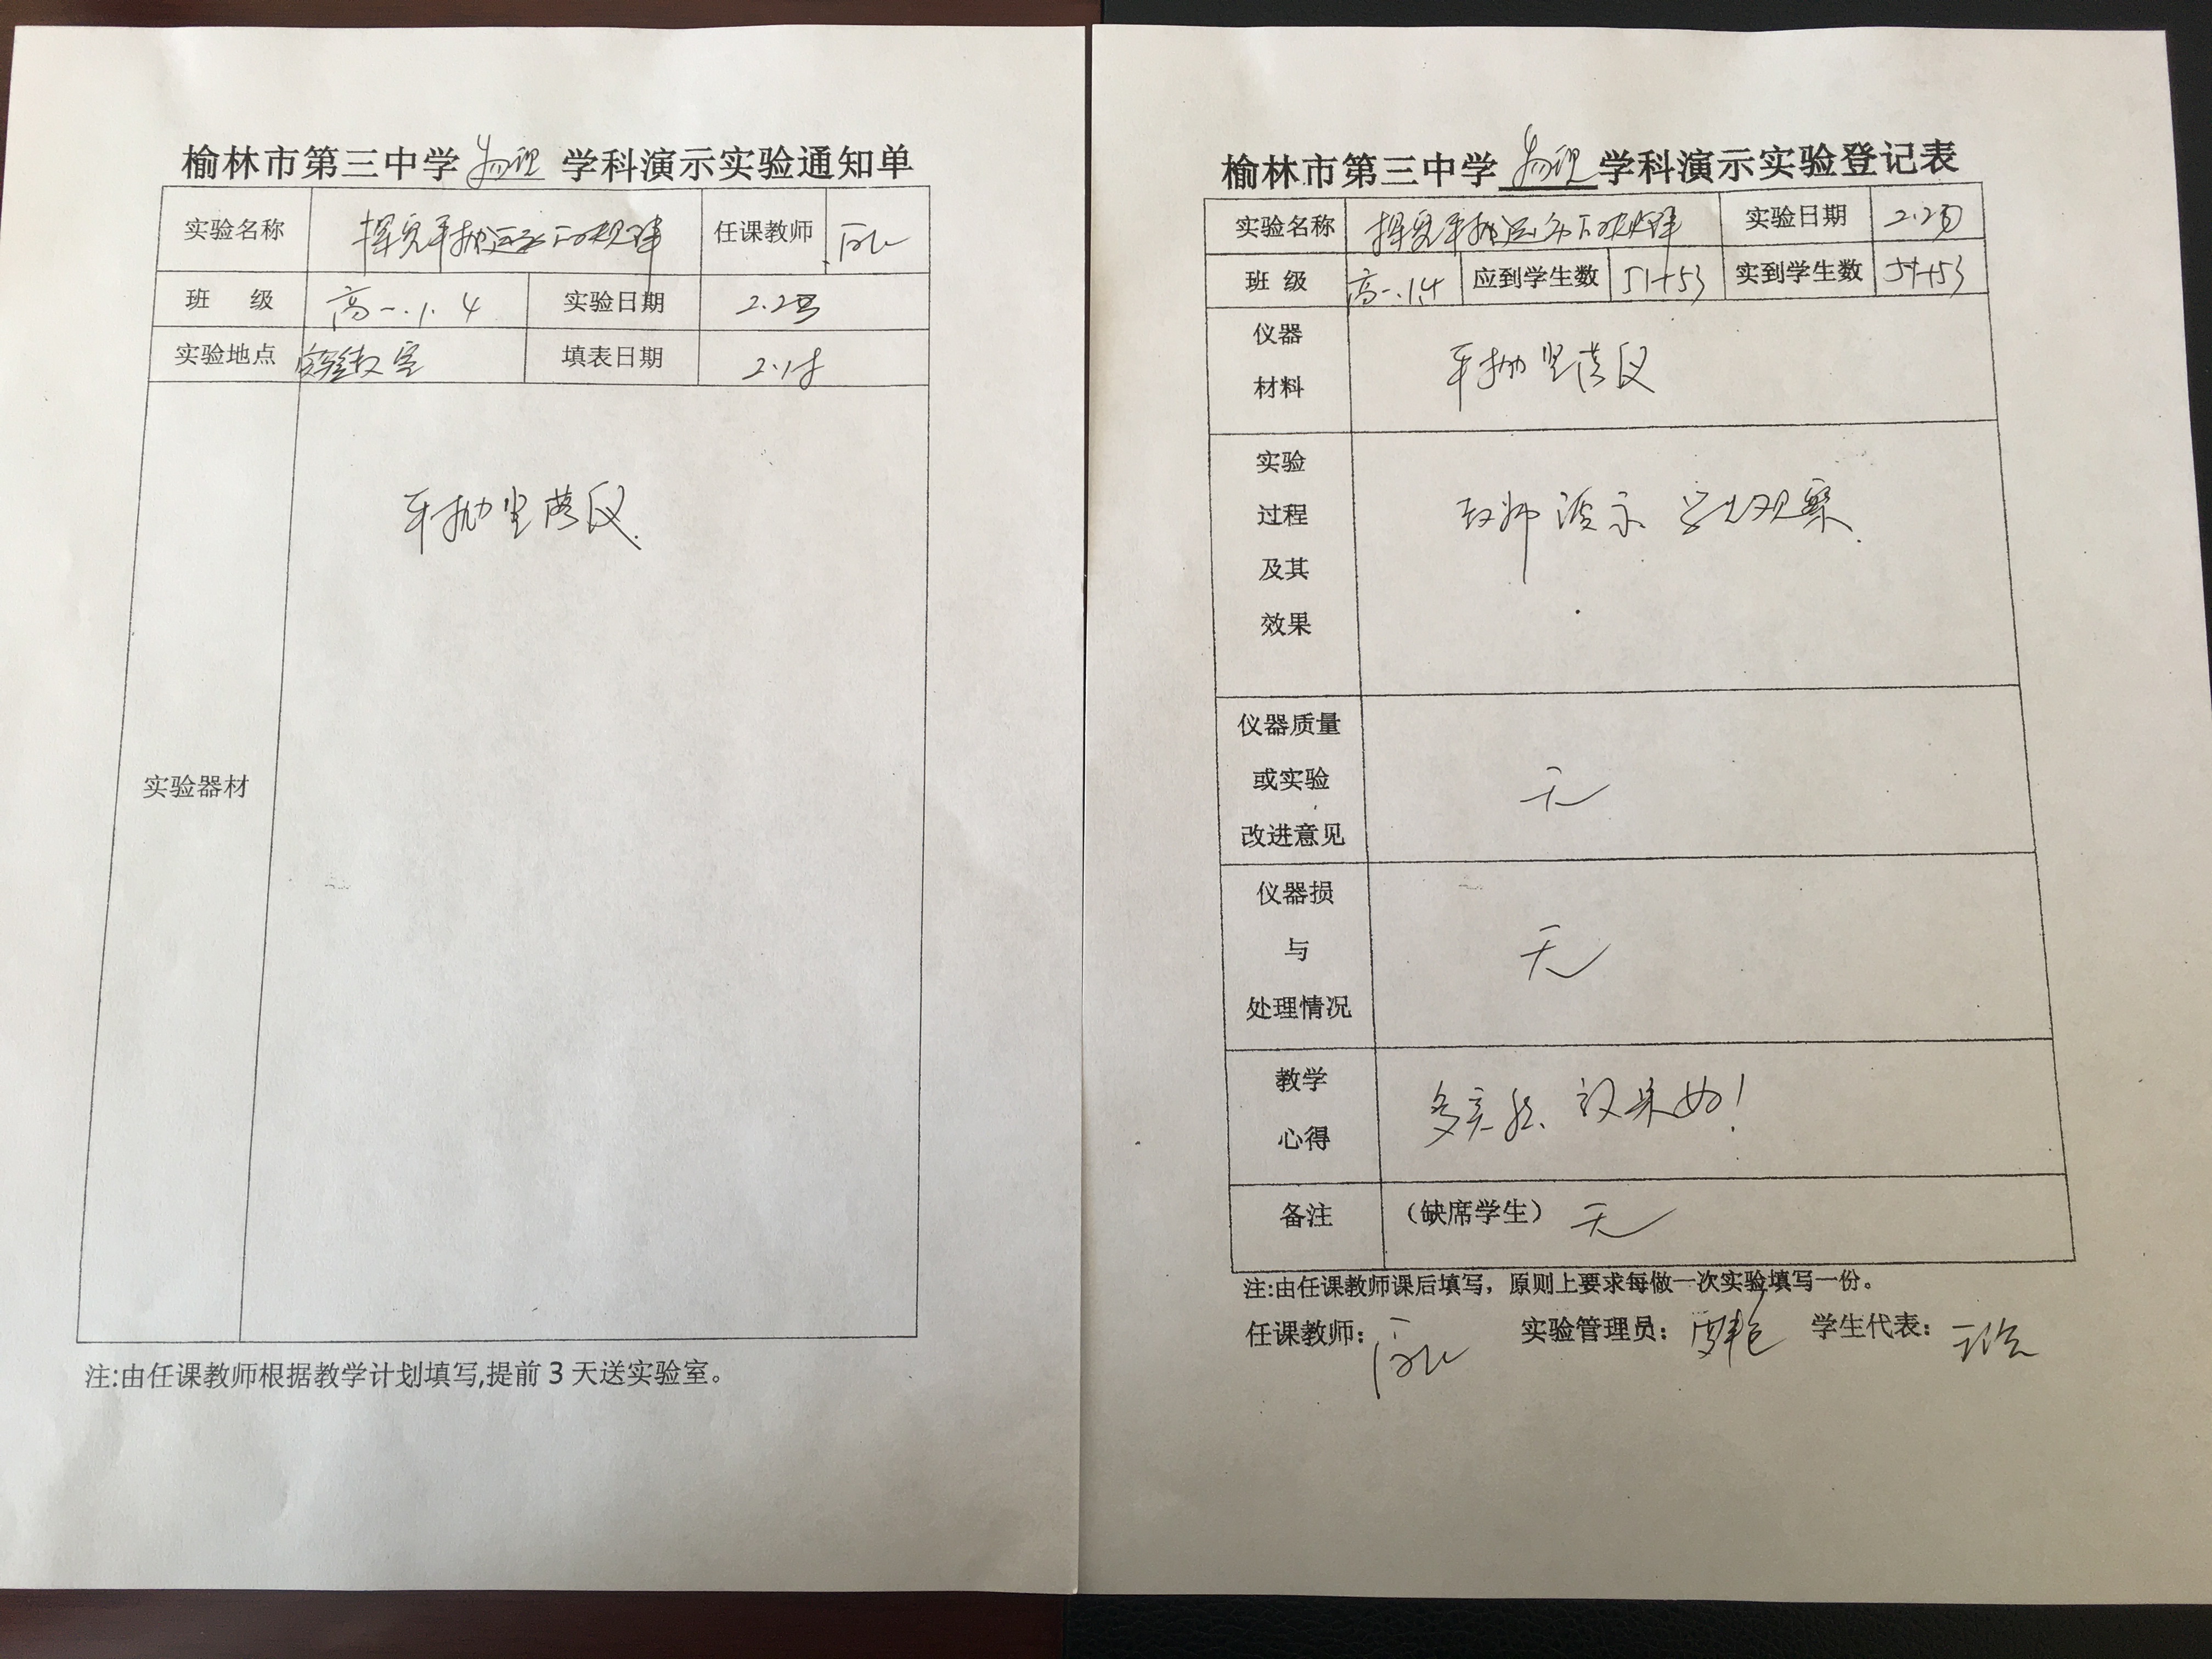 榆林市第三中学 物理 学科演示实验通知单
实验名称 探究平抛运动的规律 任课教师
班 级 高一.1.4 实验日期
实验地点 实验室 填表日期
平抛竖落仪.
实验器材
注:由任课教师根据教学计划填写,提前3天送实验室。
榆林市第三中学 物理 学科演示实验登记表
实验名称 探究平抛运动的规律 实验日期
班 级 高一.1.4 应到学生数 51+53 实到学生数 51+53
仪器
材料
平抛竖落仪
实验
过程
及其
效果
教师演示 学生观察.
仪器质量
或实验
改进意见
无
仪器损
与
处理情况
无
教学
心得
多实验、效果好!
备注 (缺席学生) 无
注:由任课教师课后填写，原则上要求每做一次实验填写一份。
任课教师: 实验管理员: 学生代表: